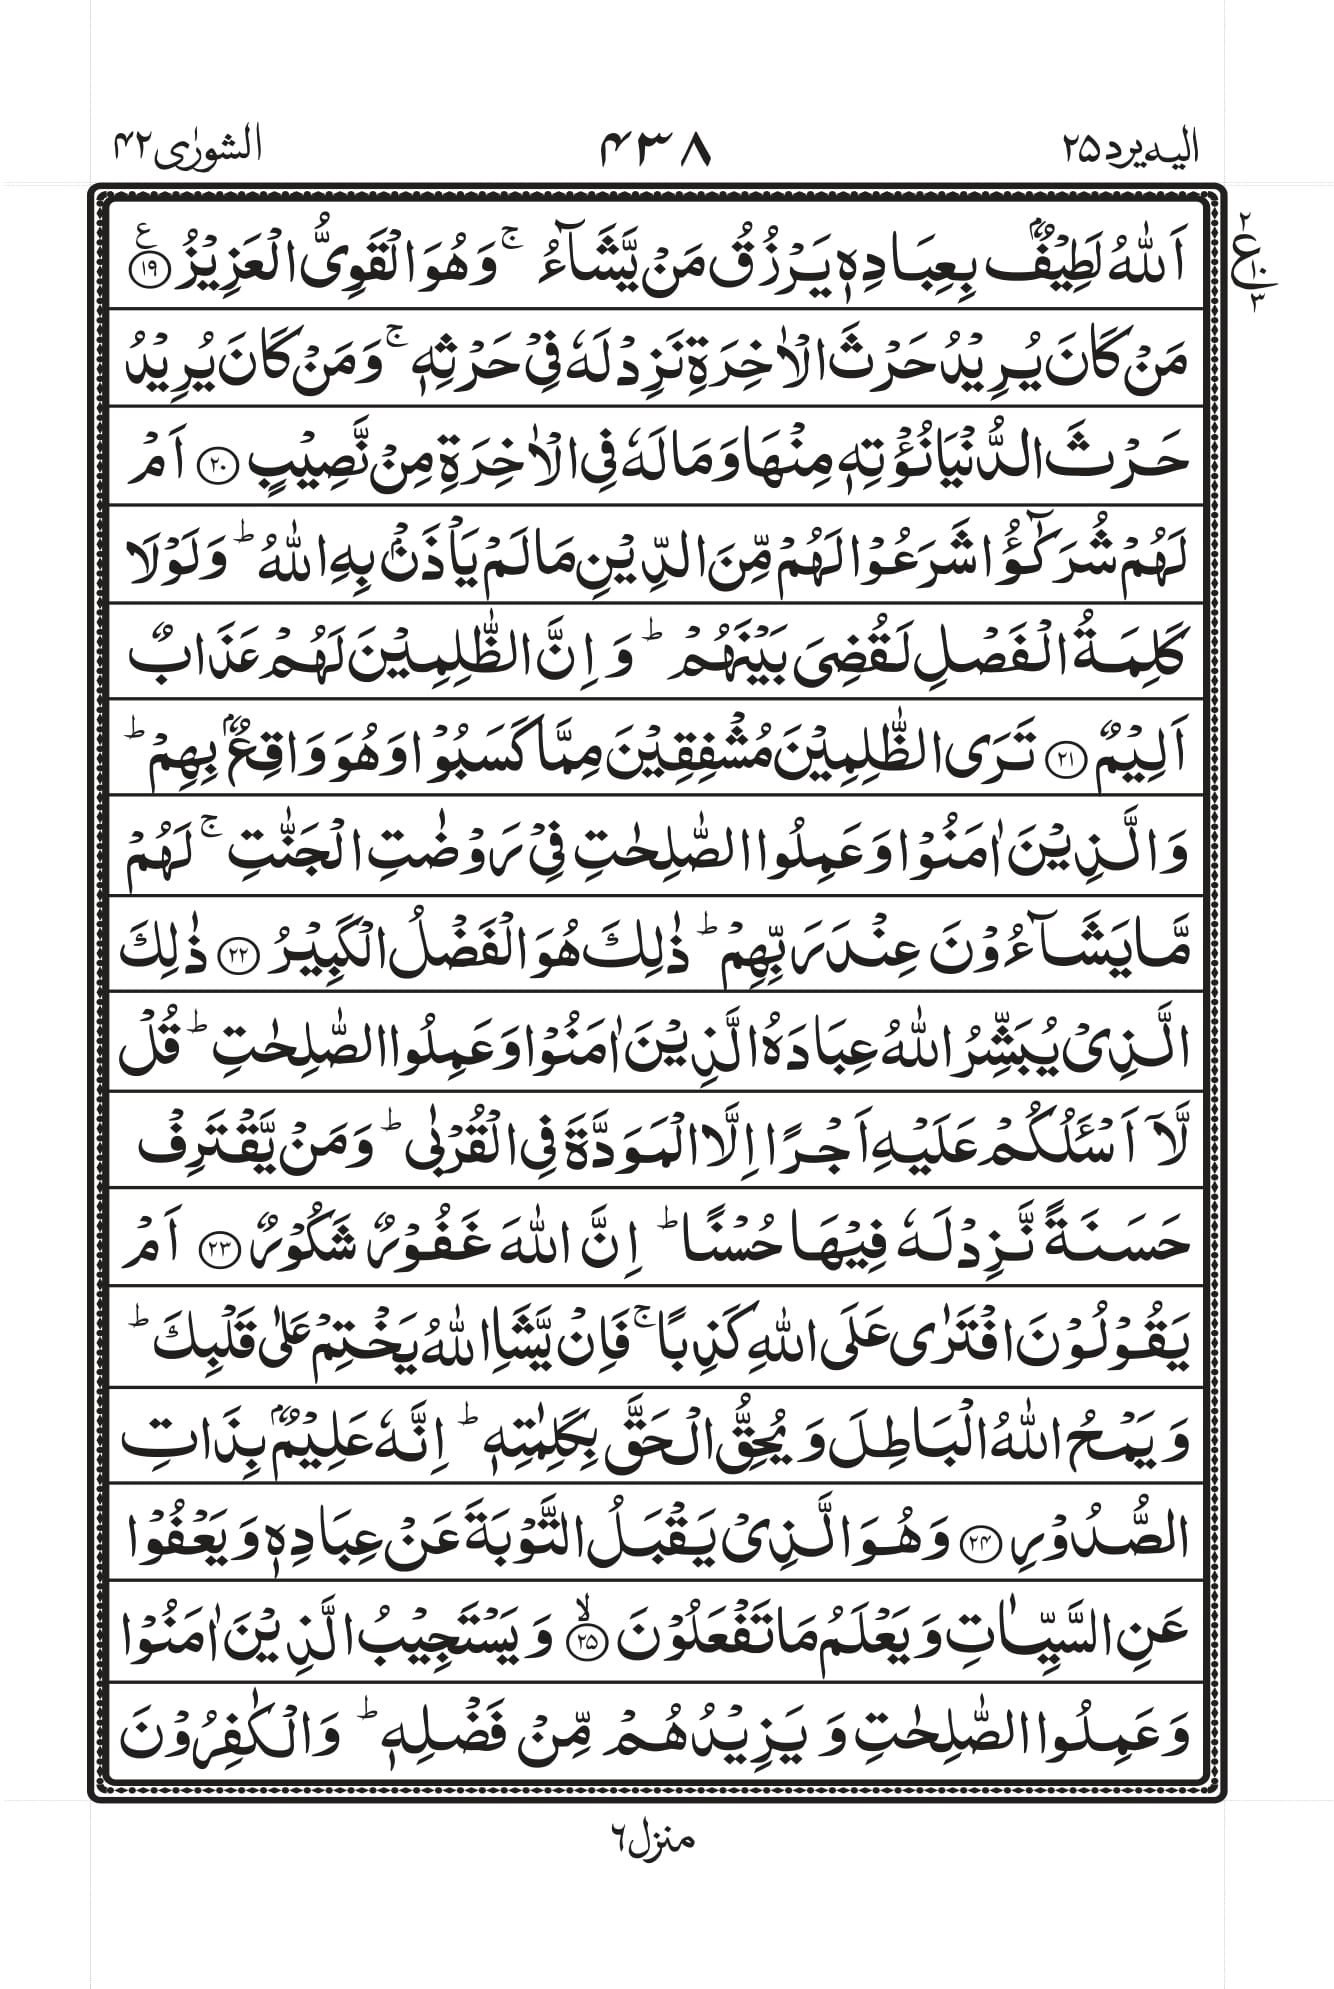 الیہ یرد ۲۵
۴۳۸
الشورٰی ۴۲
اَللّٰهُ لَطِیْفٌۢ بِعِبَادِهٖ یَرْزُقُ مَنْ یَّشَآءُ ۚ وَهُوَ الْقَوِیُّ الْعَزِیْزُ ۧ ﴿۱۹﴾
۲
ع
۱۰
۳
مَنْ كَانَ یُرِیْدُ حَرْثَ الْاٰخِرَةِ نَزِدْ لَهٗ فِیْ حَرْثِهٖ ۚ وَمَنْ كَانَ یُرِیْدُ
حَرْثَ الدُّنْیَا نُؤْتِهٖ مِنْهَا وَمَا لَهٗ فِی الْاٰخِرَةِ مِنْ نَّصِیْبٍ ﴿۲۰﴾ اَمْ
لَهُمْ شُرَكٰٓؤُا شَرَعُوْا لَهُمْ مِّنَ الدِّیْنِ مَا لَمْ یَاْذَنْۢ بِهِ اللّٰهُ ؕ وَلَوْلَا
كَلِمَةُ الْفَصْلِ لَقُضِیَ بَیْنَهُمْ ؕ وَاِنَّ الظّٰلِمِیْنَ لَهُمْ عَذَابٌ
اَلِیْمٌ ﴿۲۱﴾ تَرَی الظّٰلِمِیْنَ مُشْفِقِیْنَ مِمَّا كَسَبُوْا وَهُوَ وَاقِعٌۢ بِهِمْ ؕ
وَالَّذِیْنَ اٰمَنُوْا وَعَمِلُوا الصّٰلِحٰتِ فِیْ رَوْضٰتِ الْجَنّٰتِ ۚ لَهُمْ
مَّا یَشَآءُوْنَ عِنْدَ رَبِّهِمْ ؕ ذٰلِكَ هُوَ الْفَضْلُ الْكَبِیْرُ ﴿۲۲﴾ ذٰلِكَ
الَّذِیْ یُبَشِّرُ اللّٰهُ عِبَادَهُ الَّذِیْنَ اٰمَنُوْا وَعَمِلُوا الصّٰلِحٰتِ ؕ قُلْ
لَّاۤ اَسْـَٔلُكُمْ عَلَیْهِ اَجْرًا اِلَّا الْمَوَدَّةَ فِی الْقُرْبٰی ؕ وَمَنْ یَّقْتَرِفْ
حَسَنَةً نَّزِدْ لَهٗ فِیْهَا حُسْنًا ؕ اِنَّ اللّٰهَ غَفُوْرٌ شَكُوْرٌ ﴿۲۳﴾ اَمْ
یَقُوْلُوْنَ افْتَرٰی عَلَی اللّٰهِ كَذِبًا ۚ فَاِنْ یَّشَاِ اللّٰهُ یَخْتِمْ عَلٰی قَلْبِكَ ؕ
وَیَمْحُ اللّٰهُ الْبَاطِلَ وَیُحِقُّ الْحَقَّ بِكَلِمٰتِهٖ ؕ اِنَّهٗ عَلِیْمٌۢ بِذَاتِ
الصُّدُوْرِ ﴿۲۴﴾ وَهُوَ الَّذِیْ یَقْبَلُ التَّوْبَةَ عَنْ عِبَادِهٖ وَیَعْفُوْا
عَنِ السَّیِّاٰتِ وَیَعْلَمُ مَا تَفْعَلُوْنَ ۙ ﴿۲۵﴾ وَیَسْتَجِیْبُ الَّذِیْنَ اٰمَنُوْا
وَعَمِلُوا الصّٰلِحٰتِ وَیَزِیْدُهُمْ مِّنْ فَضْلِهٖ ؕ وَالْكٰفِرُوْنَ
منزل ۶